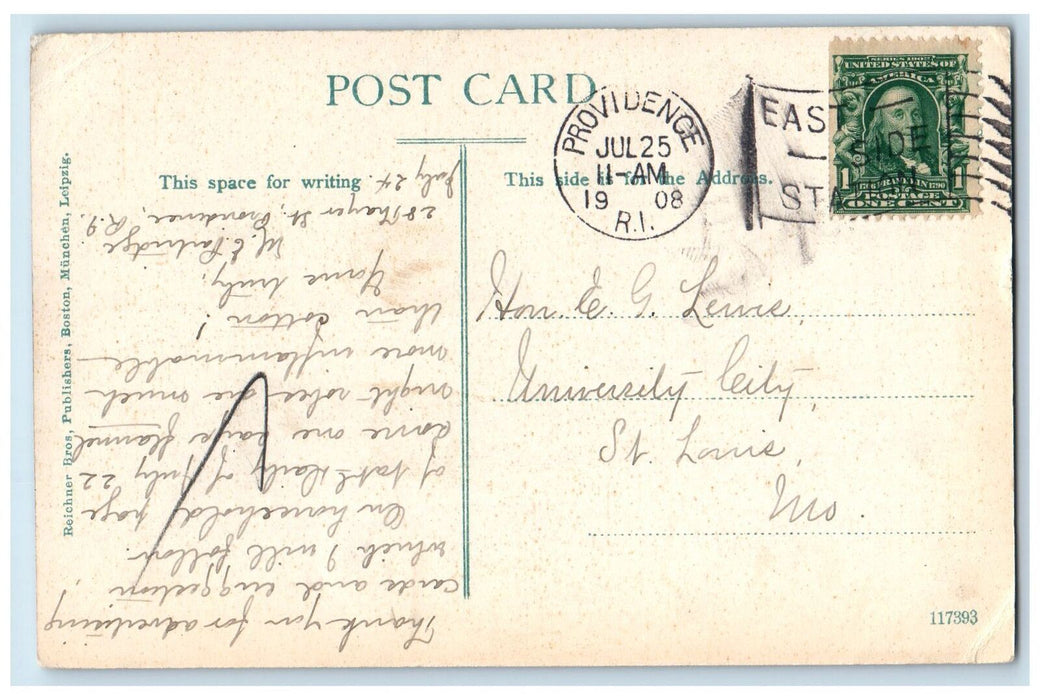 POST CARD
This space for writing.
This side is for the Address.
PROVIDENCE
JUL 25
11-AM
19 08
R.I.
EAST SIDE
STA
SERIES 1902
UNITED STATES OF
AMERICA
1 1706 FRANKLIN 1790 1
POSTAGE
ONE CENT
Hon. E. G. Lewis,
University City,
St. Louis,
Mo.
Thank you for advertising
cards and suggestion
which I will follow.
On household page
of Daily of July 22
some one says flannel
night robes are much
more inflammable
than cotton!
Yours truly,
M. E. Partridge
28 Thayer St., Providence, R.I.
July 24.
Reichner Bros, Publishers, Boston, München, Leipzig.
117393